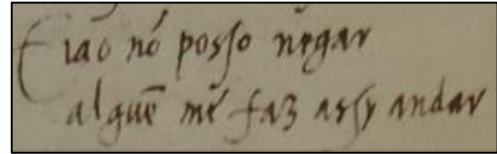 E iao nó posso negar
alguẽ me faz assy andar